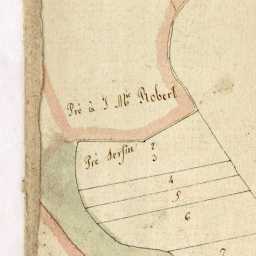 Pré à J Mr Robert
Pré dessin 2
3
4
5
6
7